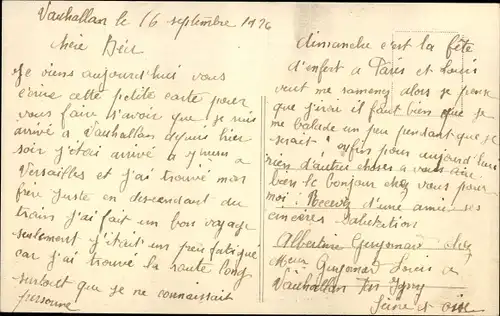 Vauhallan le 16 septembre 1926
Chère
Je viens aujourd'hui vous
écrire cette petite carte pour
vous faire s'avoir que je suis
arrivé a Vauhallan depuis hier
soir j'étai arrivé a
Versailles et j'ai trouvé mon
frère juste en descendant du
train j'ai fait un bon voyage
seulement j'était un peu fatigué
car j'ai trouvé la route long
surtout que je ne connaissait
personne
dimanche c'est la fête
d'enfant a Paris et Louis
veut me samener alors je pense
que j'irai il faut bien que je
me balade un peu pendant que je
serait enfin pour aujourd'hui
rien d'autres choses a vous dire
bien le bonjour chez vous pour
moi. Recevez d'une amie ses
sincères salutation
Albertine Guyomard chez
Guyomard Louis a
Vauhallan par Igny
Seine et oise